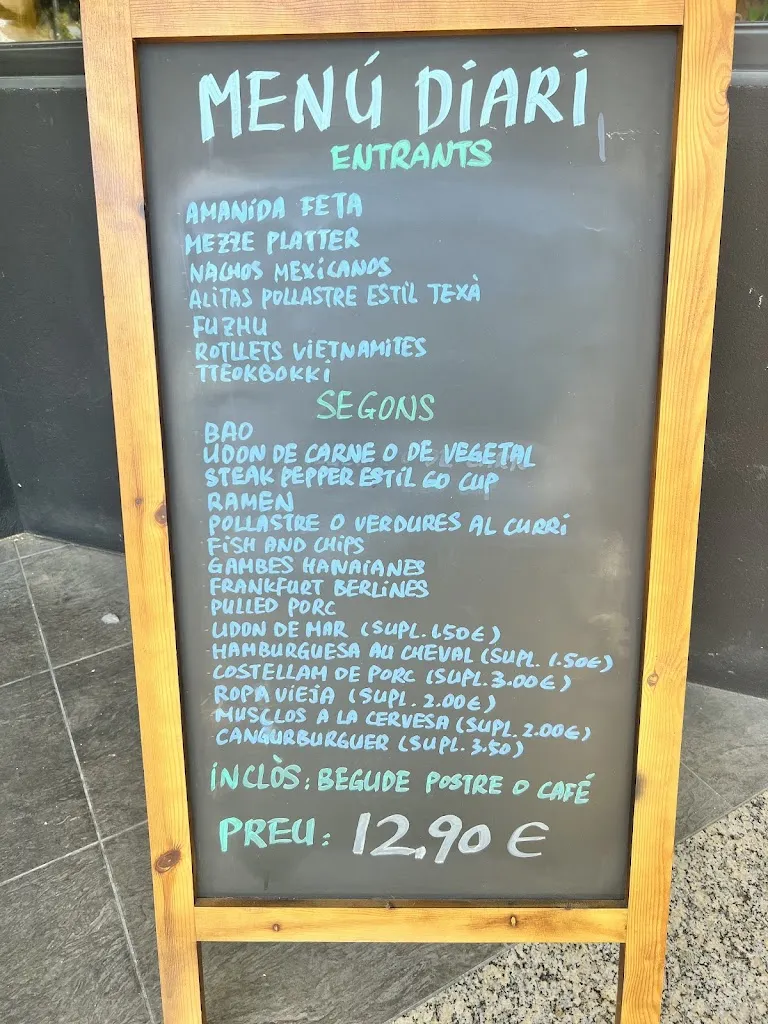 MENÚ DIARI
ENTRANTS
AMANIDA FETA
MEZZE PLATTER
NACHOS MEXICANOS
ALITAS POLLASTRE ESTIL TEXÀ
FUZHU
ROTLLETS VIETNAMITES
TTEOKBOKKI
SEGONS
BAO
UDON DE CARNE O DE VEGETAL
STEAK PEPPER ESTIL GO CUP
RAMEN
POLLASTRE O VERDURES AL CURRI
FISH AND CHIPS
GAMBES HAWAIANES
FRANKFURT BERLINES
PULLED PORC
UDON DE MAR (SUPL. 1.50€)
HAMBURGUESA AU CHEVAL (SUPL. 1.50€)
COSTELLAM DE PORC (SUPL. 3.00€)
ROPA VIEJA (SUPL. 2.00€)
MUSCLOS A LA CERVESA (SUPL. 2.00€)
CANGURBURGUER (SUPL. 3.50)
INCLÒS: BEGUDE POSTRE O CAFÉ
PREU: 12,90 €